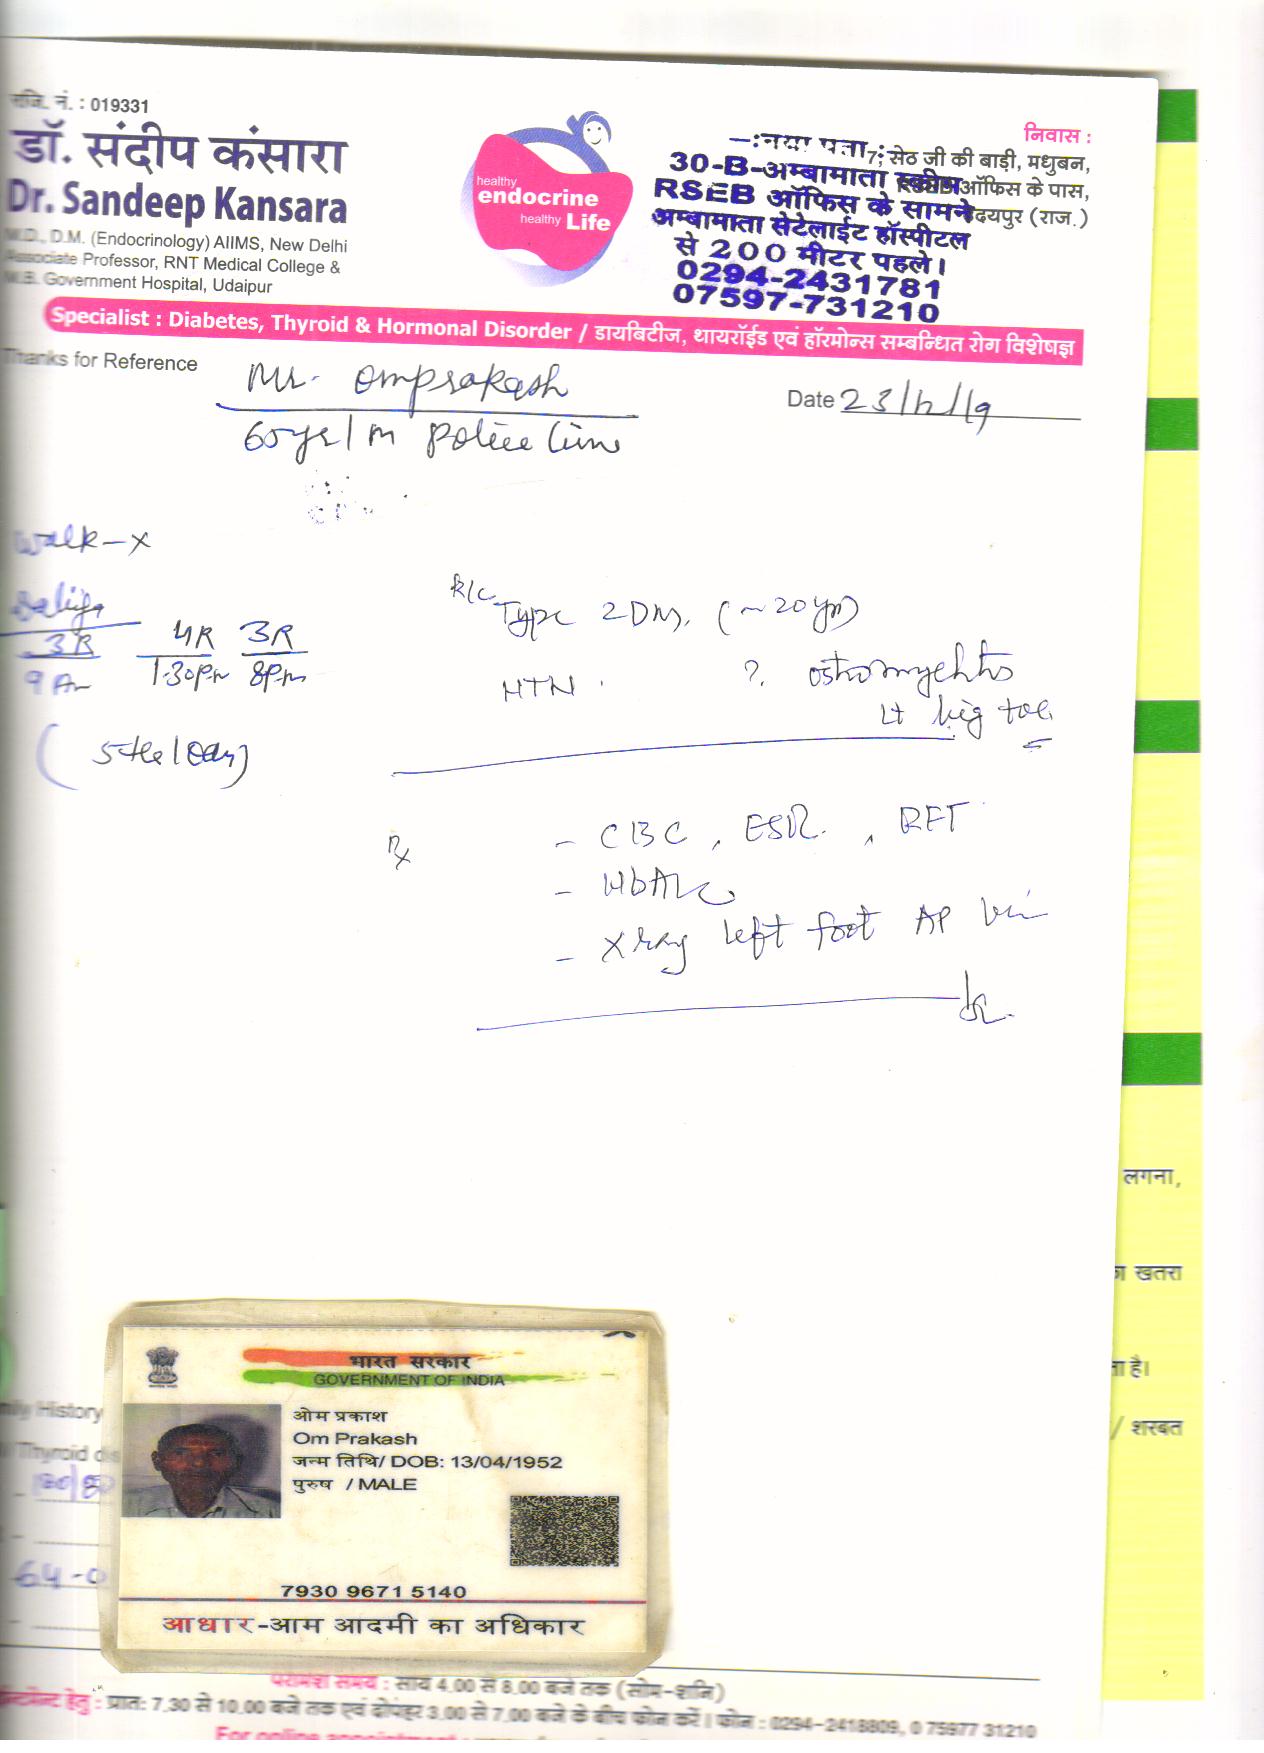 रजि. नं. : 019331
डॉ. संदीप कंसारा
Dr. Sandeep Kansara
M.D., D.M. (Endocrinology) AIIMS, New Delhi
Associate Professor, RNT Medical College &
M.B. Government Hospital, Udaipur
healthy
endocrine
healthy Life
निवास :
7, सेठ जी की बाड़ी, मधुबन,
ऑफिस के पास,
उदयपुर (राज.)
—:नया पता :-
30-B-अम्बामाता स्कीम
RSEB ऑफिस के सामने
अम्बामाता सेटेलाईट हॉस्पीटल
से 200 मीटर पहले।
0294-2431781
07597-731210
Specialist : Diabetes, Thyroid & Hormonal Disorder / डायबिटीज, थायरॉईड एवं हॉरमोन्स सम्बन्धित रोग विशेषज्ञ
Thanks for Reference
Mr. Omprakash
Date 23/12/19
60yrs/m Police Line
Walk-x
3R 4R 3R
9 Am 1.30pm 8pm
K/C Type 2DM, (~20yrs)
HTN ?. osteomyelitis
Lt big toe
Rx
- CBC, ESR, RFT
- HbA1c
- Xray left foot AP
लगना,
खतरा
ता है।
/ शरबत
Family History
Thyroid
भारत सरकार
GOVERNMENT OF INDIA
ओम प्रकाश
Om Prakash
जन्म तिथि/ DOB: 13/04/1952
पुरुष / MALE
7930 9671 5140
आधार-आम आदमी का अधिकार
परामर्श समय : सायं 4.00 से 8.00 बजे तक (सोम-शनि)
हेतु : प्रात: 7.30 से 10.00 बजे तक एवं दोपहर 3.00 से 7.00 बजे के बीच फोन करें। फोन : 0294-2418809, 0 75977 31210
For online appointment :